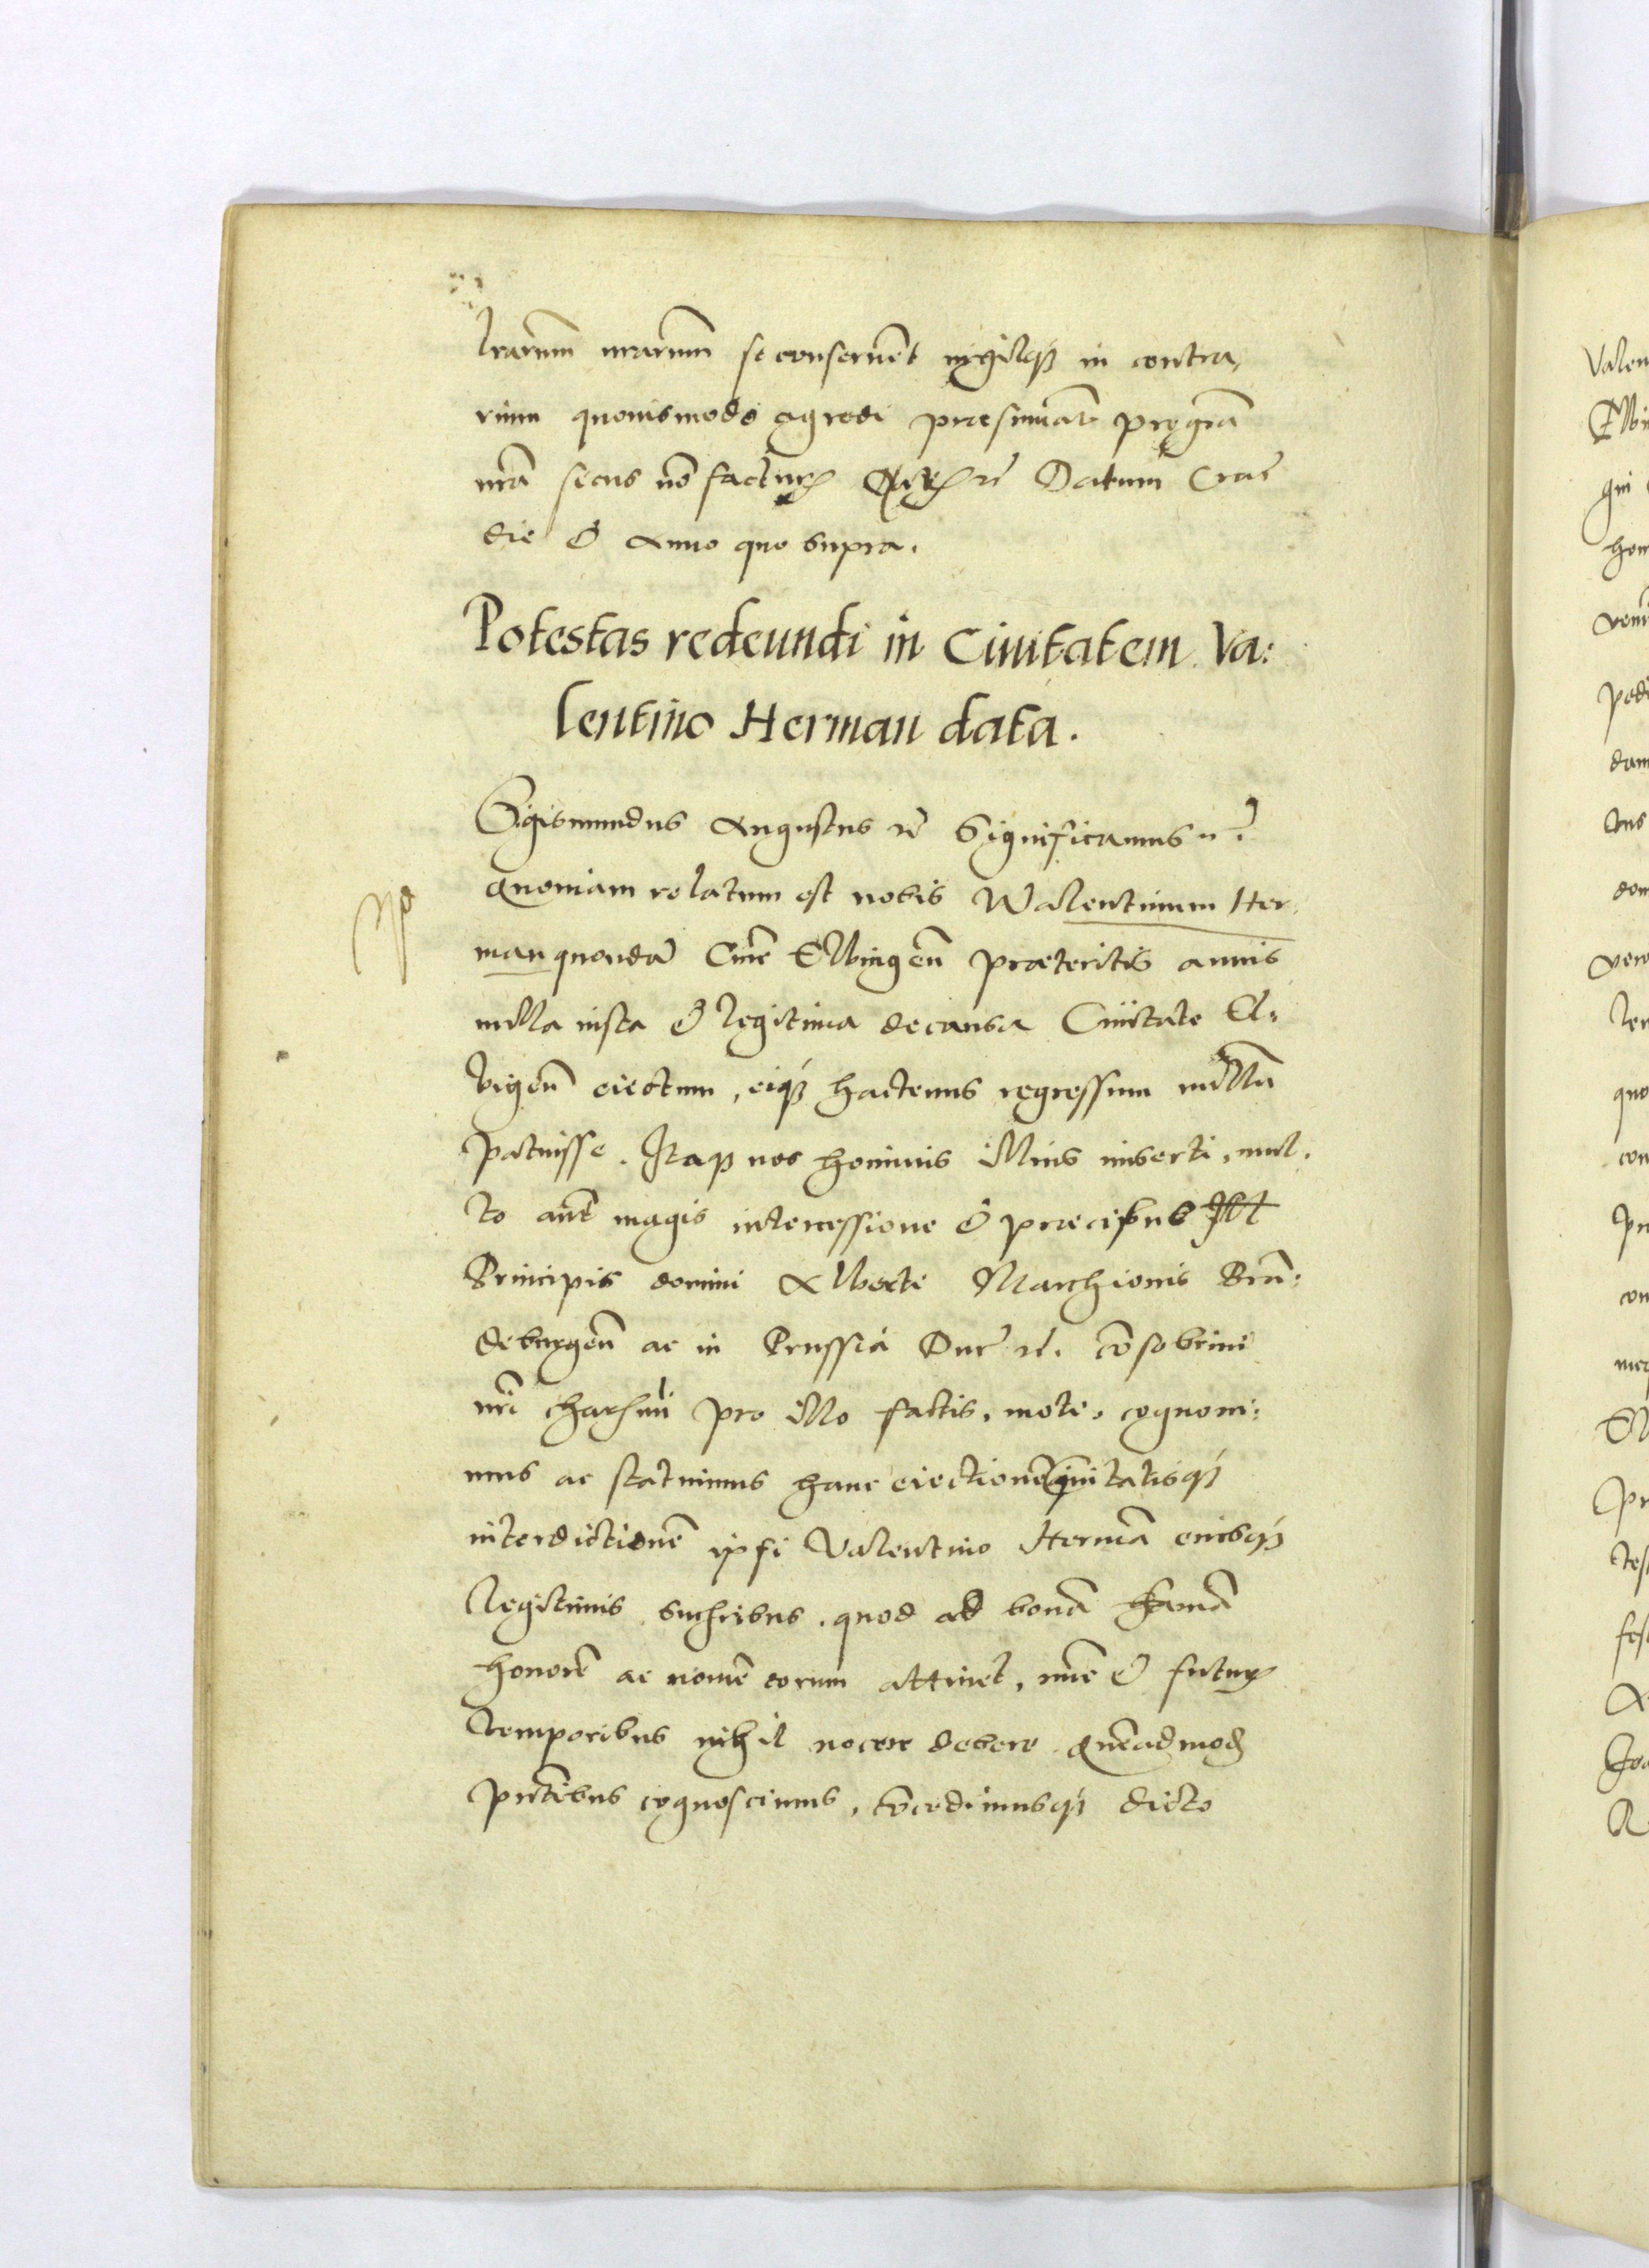 lrarum nrarum se conseruent nihilq́ʒ in contra,
rium quouismodo egredi præsumāt pro grā
nrā secus nō facturi Datum Crac̄
die & Anno quo supra.
Potestas redeundi in Ciuitatem Va:
lentino Herman data.
Sigismundus Augustus rc̄ Significamus rc̄.
Quoniam relatum est nobis Walentinum Her
man quondā Ciuē Elbingeñ præteritis annis
nulla iusta & legitima de causa Ciuitate El:
bigeñ eiectum, eiq́ʒ hactenus regressum nullū
patuisse. Itaqʒ nos hominis illius miserti, mul.
to aūt magis intercessione & præcibus Ill
Principis domini Alberti Marchionis Brā:
deburgeñ ac in Prussia Duc̄ rc̄. cōsobrini
nrī charismi pro illo factis, moti, cognoui:
mus ac statuimus hanc eiectionē Ciuitatisq́ʒ
interdictionē ipsi Valentino Hermā eiusq́ʒ
legitimis sucſribus, quod ad bonā famā
honorē ac nomē eorum attinet, nūc & futur
temporibus nihil nocere debere. Quēadmod
pñtibus cognoscimus, cōcedimusq́ʒ dicto
Valen
Elbi